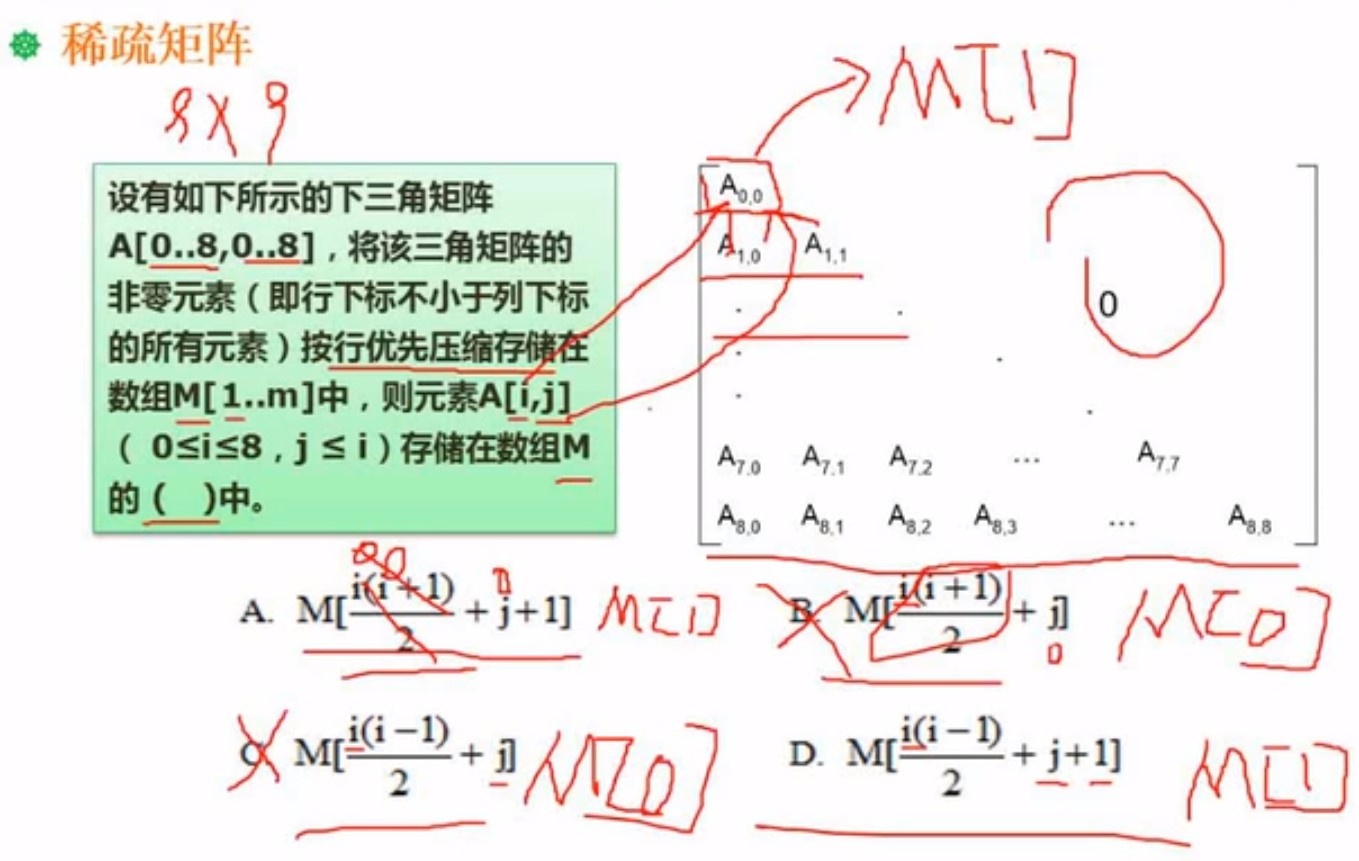 稀疏矩阵
8×9
M[1]
设有如下所示的下三角矩阵
A[0..8,0..8]，将该三角矩阵的
非零元素（即行下标不小于列下标
的所有元素）按行优先压缩存储在
数组M[1..m]中，则元素A[i,j]
（ 0≤i≤8，j ≤ i）存储在数组M
的 (   )中。
A0,0
A1,0 A1,1
0
A7,0 A7,1 A7,2 … A7,7
A8,0 A8,1 A8,2 A8,3 … A8,8
0 0 0
A. M[i(i+1)/2 + j+1] M[1]
B. M[i(i+1)/2 + j] M[0]
0
C. M[i(i−1)/2 + j] M[0]
D. M[i(i−1)/2 + j+1] M[1]